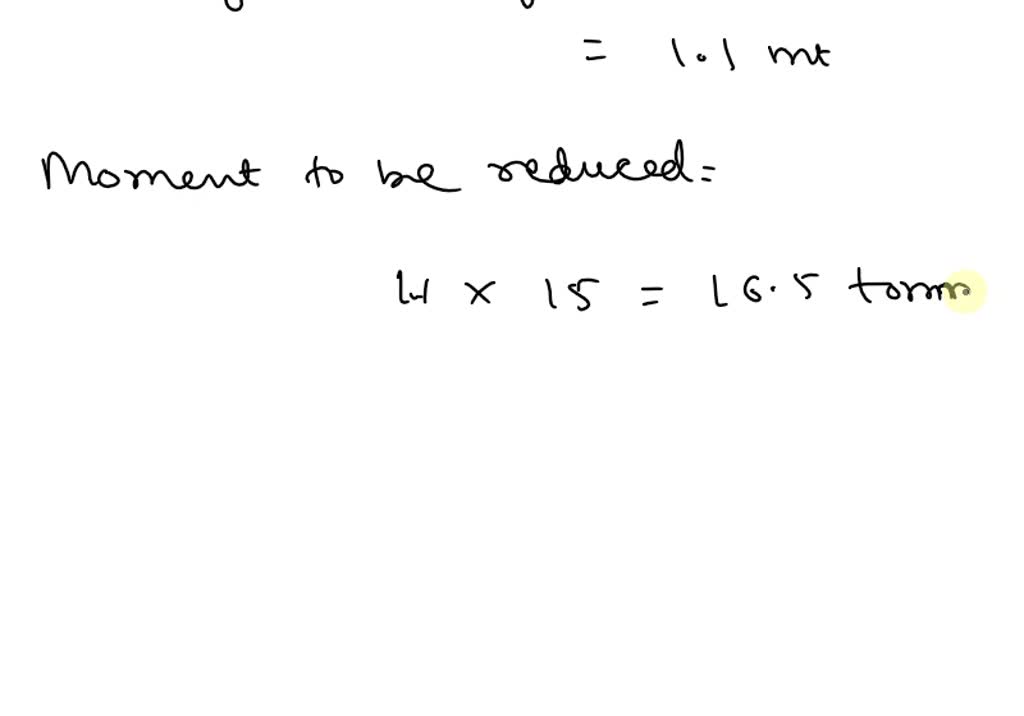 = 1.1 mt
Moment to be reduced =
× 15 = 16.5